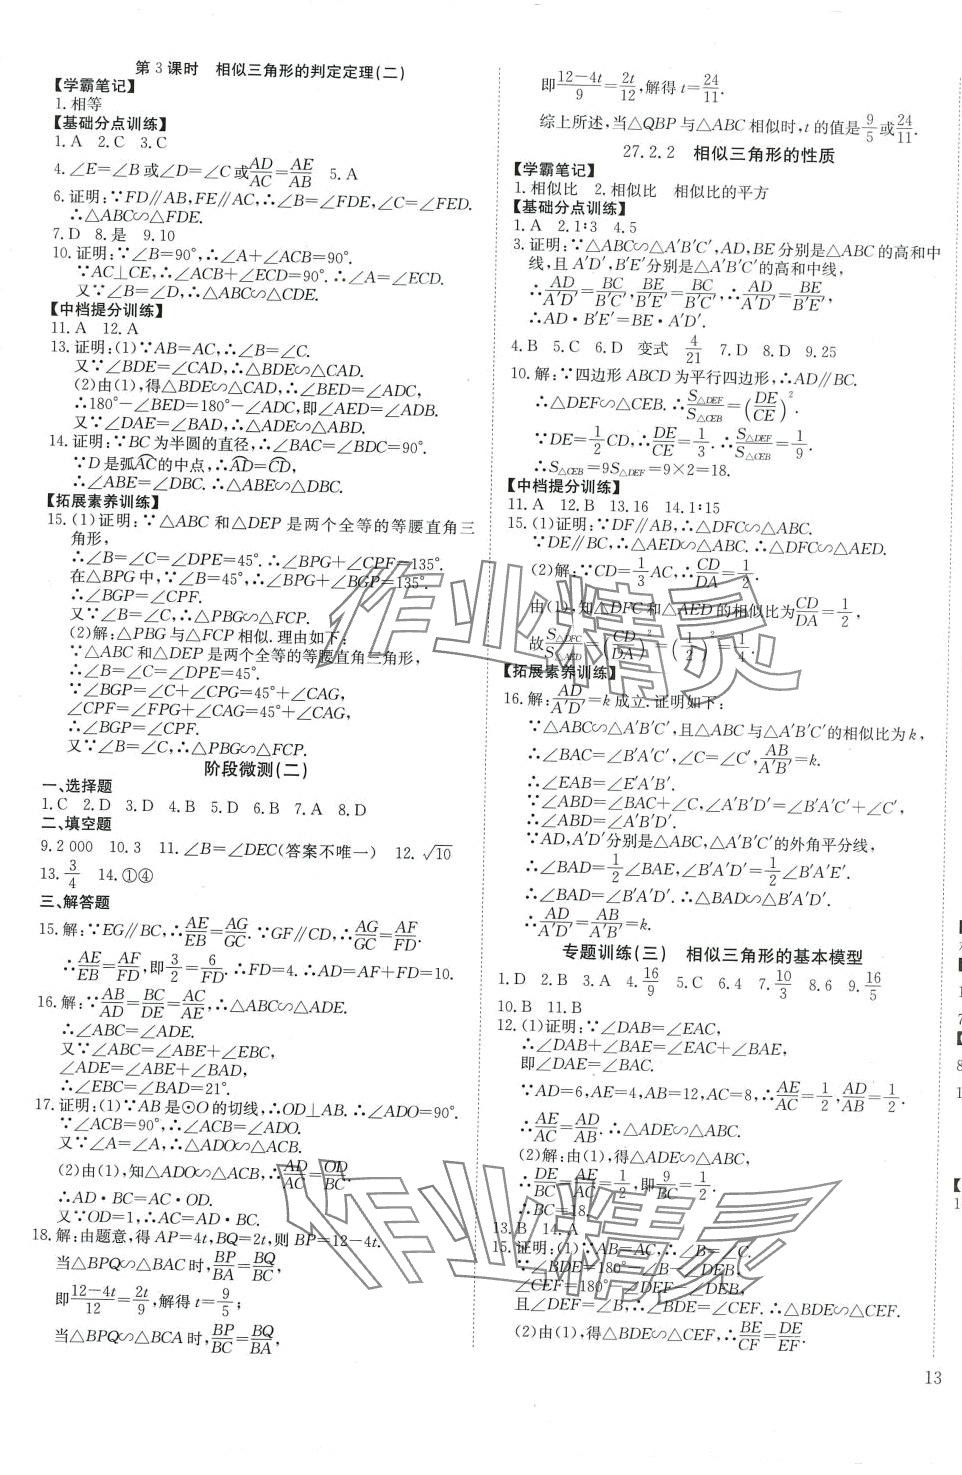 第3课时 相似三角形的判定定理(二)
【学霸笔记】
1.相等
【基础分点训练】
1.A 2.C 3.C
4.∠E=∠B或∠D=∠C或AD/AC=AE/AB 5.A
6.证明:∵FD∥AB,FE∥AC,∴∠B=∠FDE,∠C=∠FED.
∴△ABC∽△FDE.
7.D 8.是 9.10
10.证明:∵∠B=90°,∴∠A+∠ACB=90°.
∵AC⊥CE,∴∠ACB+∠ECD=90°.∴∠A=∠ECD.
又∵∠B=∠D,∴△ABC∽△CDE.
【中档提分训练】
11.A 12.A
13.证明:(1)∵AB=AC,∴∠B=∠C.
又∵∠BDE=∠CAD,∴△BDE∽△CAD.
(2)由(1),得△BDE∽△CAD,∴∠BED=∠ADC,
∴180°-∠BED=180°-∠ADC,即∠AED=∠ADB.
又∵∠DAE=∠BAD,∴△ADE∽△ABD.
14.证明:∵BC为半圆的直径,∴∠BAC=∠BDC=90°.
∵D是弧AC的中点,∴AD=CD,
∴∠ABE=∠DBC.∴△ABE∽△DBC.
【拓展素养训练】
15.(1)证明:∵△ABC和△DEP是两个全等的等腰直角三
角形,
∴∠B=∠C=∠DPE=45°.∴∠BPG+∠CPF=135°.
在△BPG中,∵∠B=45°,∴∠BPG+∠BGP=135°.
∴∠BGP=∠CPF.
又∵∠B=∠C,∴△PBG∽△FCP.
(2)解:△PBG与△FCP相似.理由如下:
∵△ABC和△DEP是两个全等的等腰直角三角形,
∴∠B=∠C=∠DPE=45°.
∵∠BGP=∠C+∠CPG=45°+∠CAG,
∠CPF=∠FPG+∠CAG=45°+∠CAG,
∴∠BGP=∠CPF.
又∵∠B=∠C,∴△PBG∽△FCP.
阶段微测(二)
一、选择题
1.C 2.D 3.D 4.B 5.D 6.B 7.A 8.D
二、填空题
9.2 000 10.3 11.∠B=∠DEC(答案不唯一) 12.√10
13.3/4 14.①④
三、解答题
15.解:∵EG∥BC,∴AE/EB=AG/GC.∵GF∥CD,∴AG/GC=AF/FD.
∴AE/EB=AF/FD,即3/2=6/FD.∴FD=4.∴AD=AF+FD=10.
16.解:∵AB/AD=BC/DE=AC/AE,∴△ABC∽△ADE.
∴∠ABC=∠ADE.
又∵∠ABC=∠ABE+∠EBC,
∠ADE=∠ABE+∠BAD,
∴∠EBC=∠BAD=21°.
17.证明:(1)∵AB是⊙O的切线,∴OD⊥AB.∴∠ADO=90°.
∵∠ACB=90°,∴∠ADO=∠ACB.
又∵∠A=∠A,∴△ADO∽△ACB.
(2)由(1),知△ADO∽△ACB,∴AD/AC=OD/BC.
∴AD·BC=AC·OD.
又∵OD=1,∴AC=AD·BC.
18.解:由题意,得AP=4t,BQ=2t,则BP=12-4t.
当△BPQ∽△BAC时,BP/BA=BQ/BC,
即12-4t/12=2t/9,解得t=9/5;
当△BPQ∽△BCA时,BP/BC=BQ/BA,
即12-4t/9=2t/12,解得t=24/11.
综上所述,当△QBP与△ABC相似时,t的值是9/5或24/11.
27.2.2 相似三角形的性质
【学霸笔记】
1.相似比 2.相似比 相似比的平方
【基础分点训练】
1.A 2.1∶3 4.5
3.证明:∵△ABC∽△A′B′C′,AD,BE分别是△ABC的高和中
线,且A′D′,B′E′分别是△A′B′C′的高和中线,
∴AD/A′D′=BC/B′C′,BE/B′E′=BC/B′C′,∴AD/A′D′=BE/B′E′,
∴AD·B′E′=BE·A′D′.
4.B 5.C 6.D 变式 4/21 7.D 8.D 9.25
10.解:∵四边形ABCD为平行四边形,∴AD∥BC.
∴△DEF∽△CEB.∴S△DEF/S△CEB=(DE/CE)².
∵DE=1/2CD,∴DE/CE=1/3.∴S△DEF/S△CEB=1/9.
∴S△CEB=9S△DEF=9×2=18.
【中档提分训练】
11.A 12.B 13.16 14.1∶15
15.(1)证明:∵DF∥AB,∴△DFC∽△ABC.
∵DE∥BC,∴△AED∽△ABC.∴△DFC∽△AED.
(2)解:∵CD=1/3AC,∴CD/DA=1/2.
由(1),知△DFC和△AED的相似比为CD/DA=1/2,
故S△DFC/S△AED=(CD/DA)²=(1/2)²=1/4.
【拓展素养训练】
16.解:AD/A′D′=k成立.证明如下:
∵△ABC∽△A′B′C′,且△ABC与△A′B′C′的相似比为k,
∴∠BAC=∠B′A′C′,∠C=∠C′,AB/A′B′=k.
∴∠EAB=∠E′A′B′.
∵∠ABD=∠BAC+∠C,∠A′B′D′=∠B′A′C′+∠C′,
∴∠ABD=∠A′B′D′.
∵AD,A′D′分别是△ABC,△A′B′C′的外角平分线,
∴∠BAD=1/2∠BAE,∠B′A′D′=1/2∠B′A′E′.
∴∠BAD=∠B′A′D′.∴△BAD∽△B′A′D′.
∴AD/A′D′=AB/A′B′=k.
专题训练(三) 相似三角形的基本模型
1.D 2.B 3.A 4.16/9 5.C 6.4 7.10/3 8.6 9.16/5
10.B 11.B
12.(1)证明:∵∠DAB=∠EAC,
∴∠DAB+∠BAE=∠EAC+∠BAE,
即∠DAE=∠BAC.
∵AD=6,AE=4,AB=12,AC=8,∴AE/AC=1/2,AD/AB=1/2.
∴AE/AC=AD/AB.∴△ADE∽△ABC.
(2)解:由(1),得△ADE∽△ABC,
∴DE/BC=AE/AC=1/2,即9/BC=1/2.
∴BC=18.
13.B 14.A
15.证明:(1)∵AB=AC,∴∠B=∠C.
∵∠BDE=180°-∠B-∠DEB,
∠CEF=180°-∠DEF-∠DEB,
且∠DEF=∠B,∴∠BDE=∠CEF.∴△BDE∽△CEF.
(2)由(1),得△BDE∽△CEF,∴BE/CF=DE/EF.
13
作业精灵
作业精灵